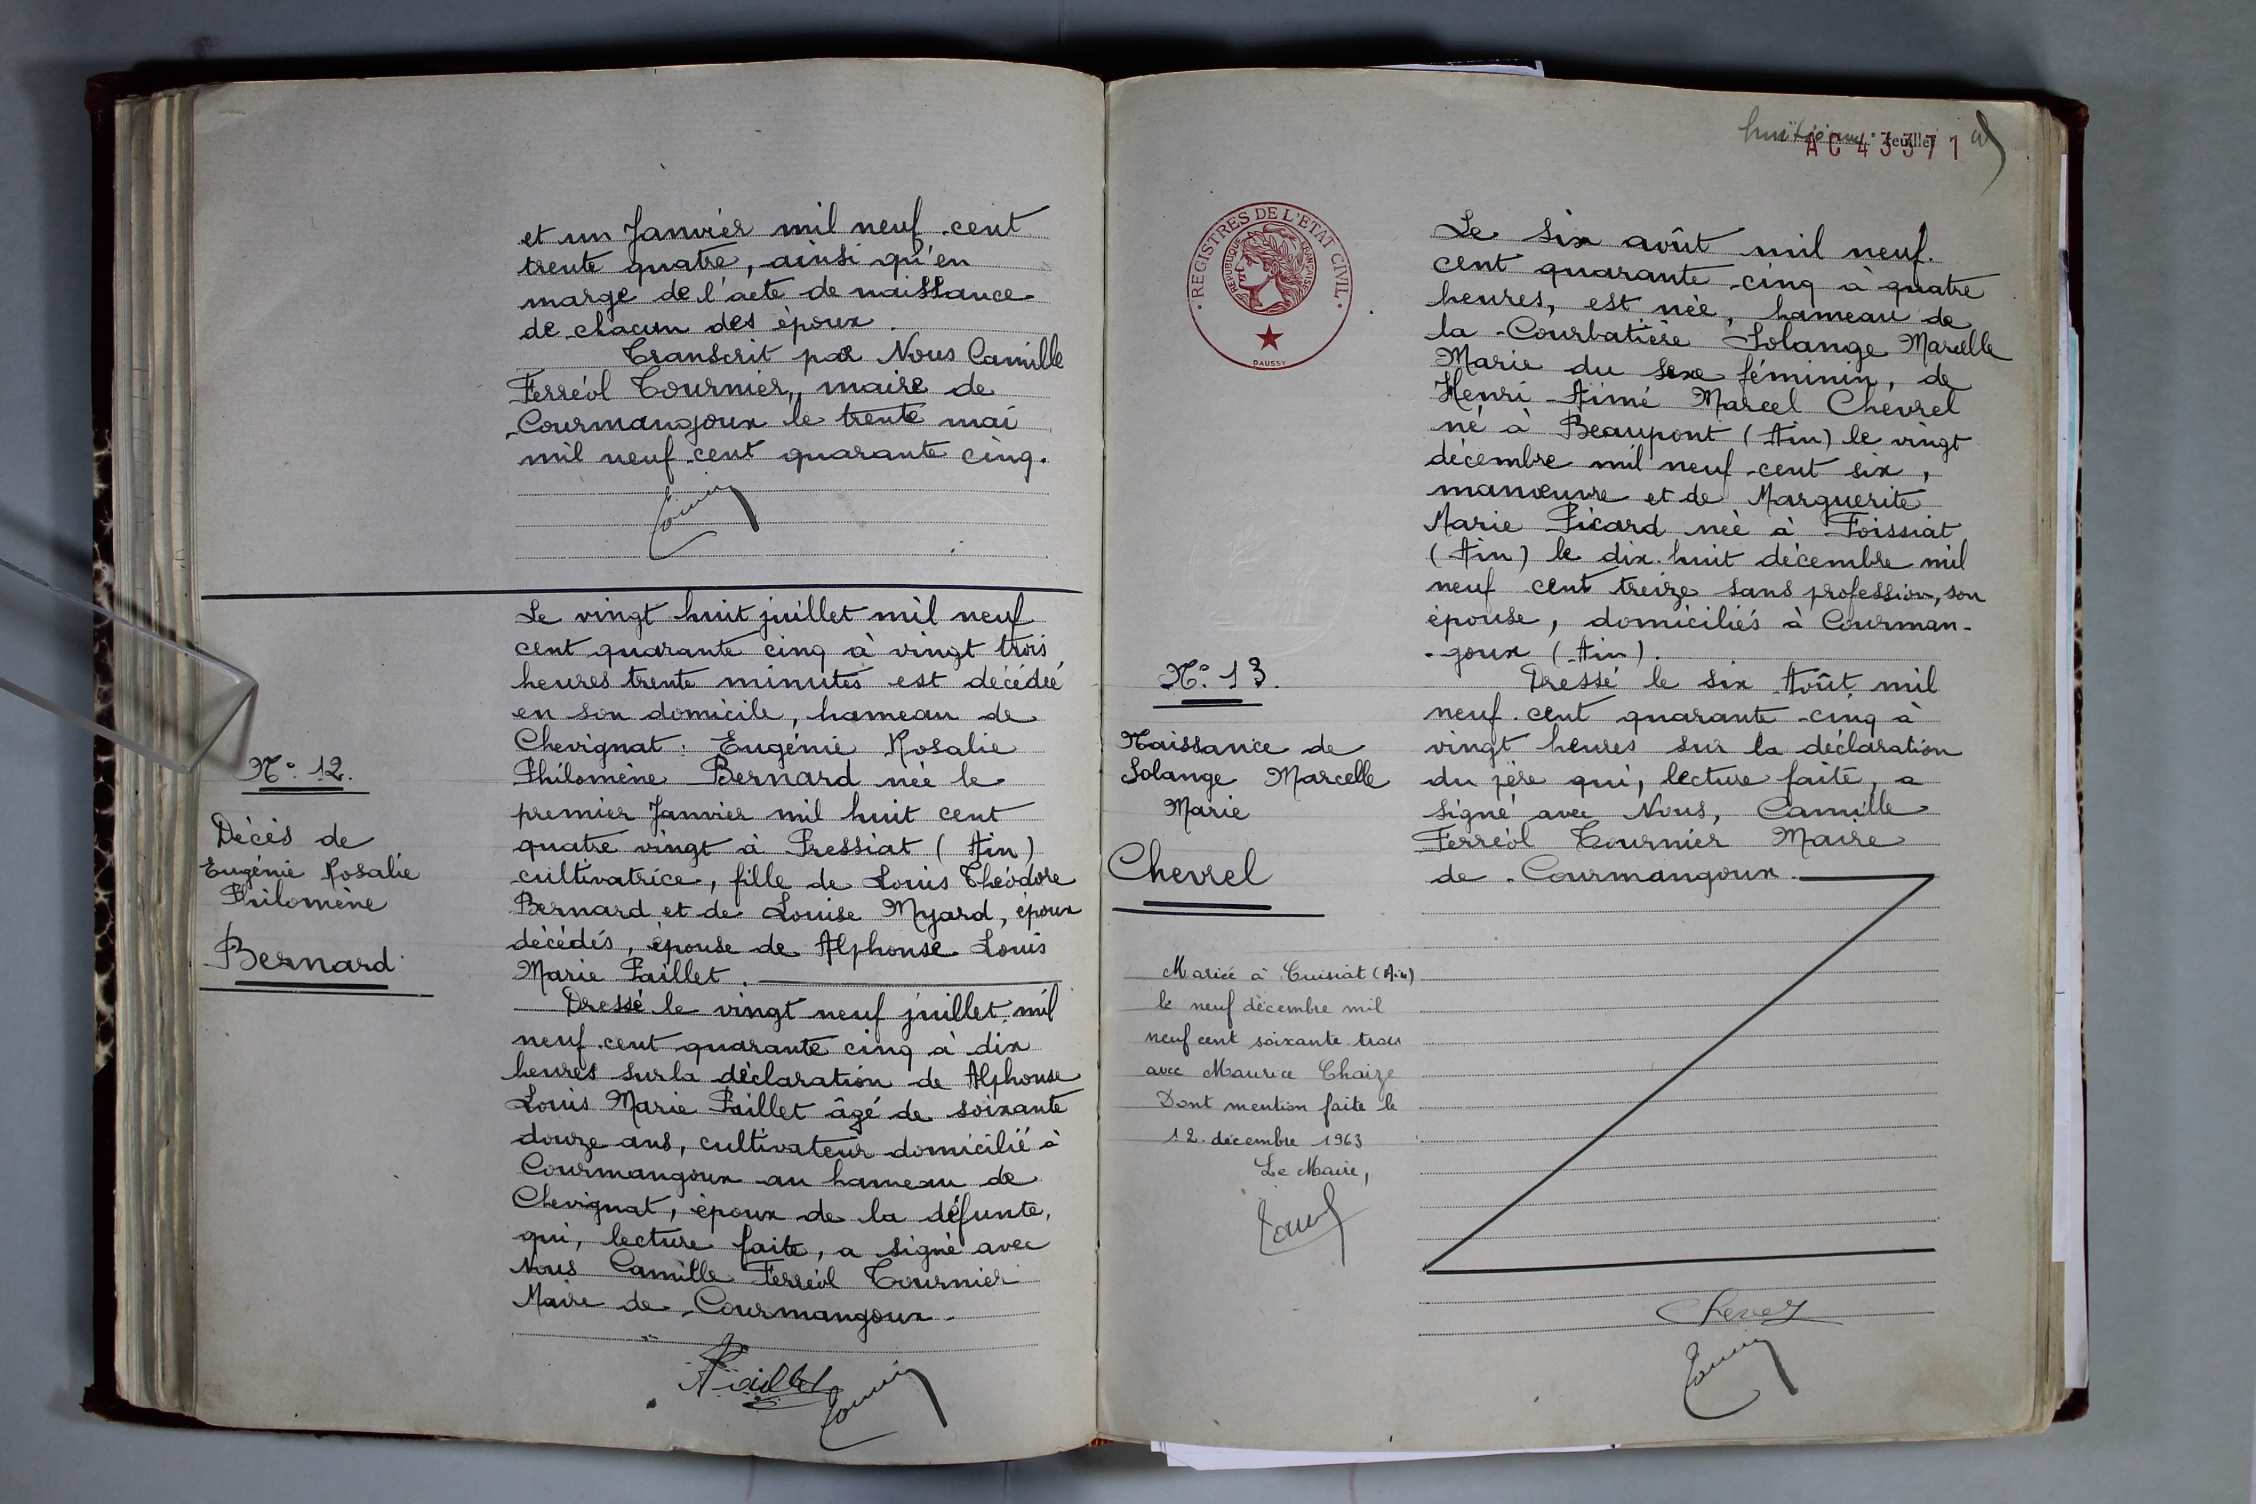 et un Janvier mil neuf cent
trente quatre, ainsi qu'en
marge de l'acte de naissance
de chacun des époux.
Transcrit par Nous Camille
Ferréol Tournier, maire de
Courmangoux le trente mai
mil neuf cent quarante cinq.
N° 12.
Décès de
Eugénie Rosalie
Philomène
Bernard
Le vingt huit juillet mil neuf
cent quarante cinq à vingt trois
heures trente minutes est décédée
en son domicile, hameau de
Chevignat : Eugénie Rosalie
Philomène Bernard née le
premier Janvier mil huit cent
quatre vingt à Pressiat (Ain)
cultivatrice, fille de Louis Théodore
Bernard et de Louise Myard, époux
décédés, épouse de Alphonse Louis
Marie Paillet.
Dressé le vingt neuf juillet mil
neuf cent quarante cinq à dix
heures sur la déclaration de Alphonse
Louis Marie Paillet âgé de soixante
douze ans, cultivateur domicilié à
Courmangoux au hameau de
Chevignat, époux de la défunte,
qui, lecture faite, a signé avec
Nous Camille Ferréol Tournier
Maire de Courmangoux.
APaillet
huitième feuillet
AC43371
REGISTRES DE L'ETAT CIVIL
REPUBLIQUE FRANÇAISE
DAUSSY
N° 13.
Naissance de
Solange Marcelle
Marie
Chevrel
Mariée à Cuisiat (Ain)
le neuf décembre mil
neuf cent soixante trois
avec Maurice Chaize
Dont mention faite le
12 décembre 1963
Le Maire,
Le six août mil neuf
cent quarante cinq à quatre
heures, est née, hameau de
la Courbatière Solange Marcelle
Marie du sexe féminin, de
Henri Aimé Marcel Chevrel
né à Beaupont (Ain) le vingt
décembre mil neuf cent six,
manœuvre et de Marguerite
Marie Picard née à Foissiat
(Ain) le dix huit décembre mil
neuf cent treize sans profession, son
épouse, domiciliés à Courman-
-goux (Ain).
Dressé le six Août mil
neuf cent quarante cinq à
vingt heures sur la déclaration
du père qui, lecture faite, a
signé avec Nous, Camille
Ferréol Tournier Maire
de Courmangoux.